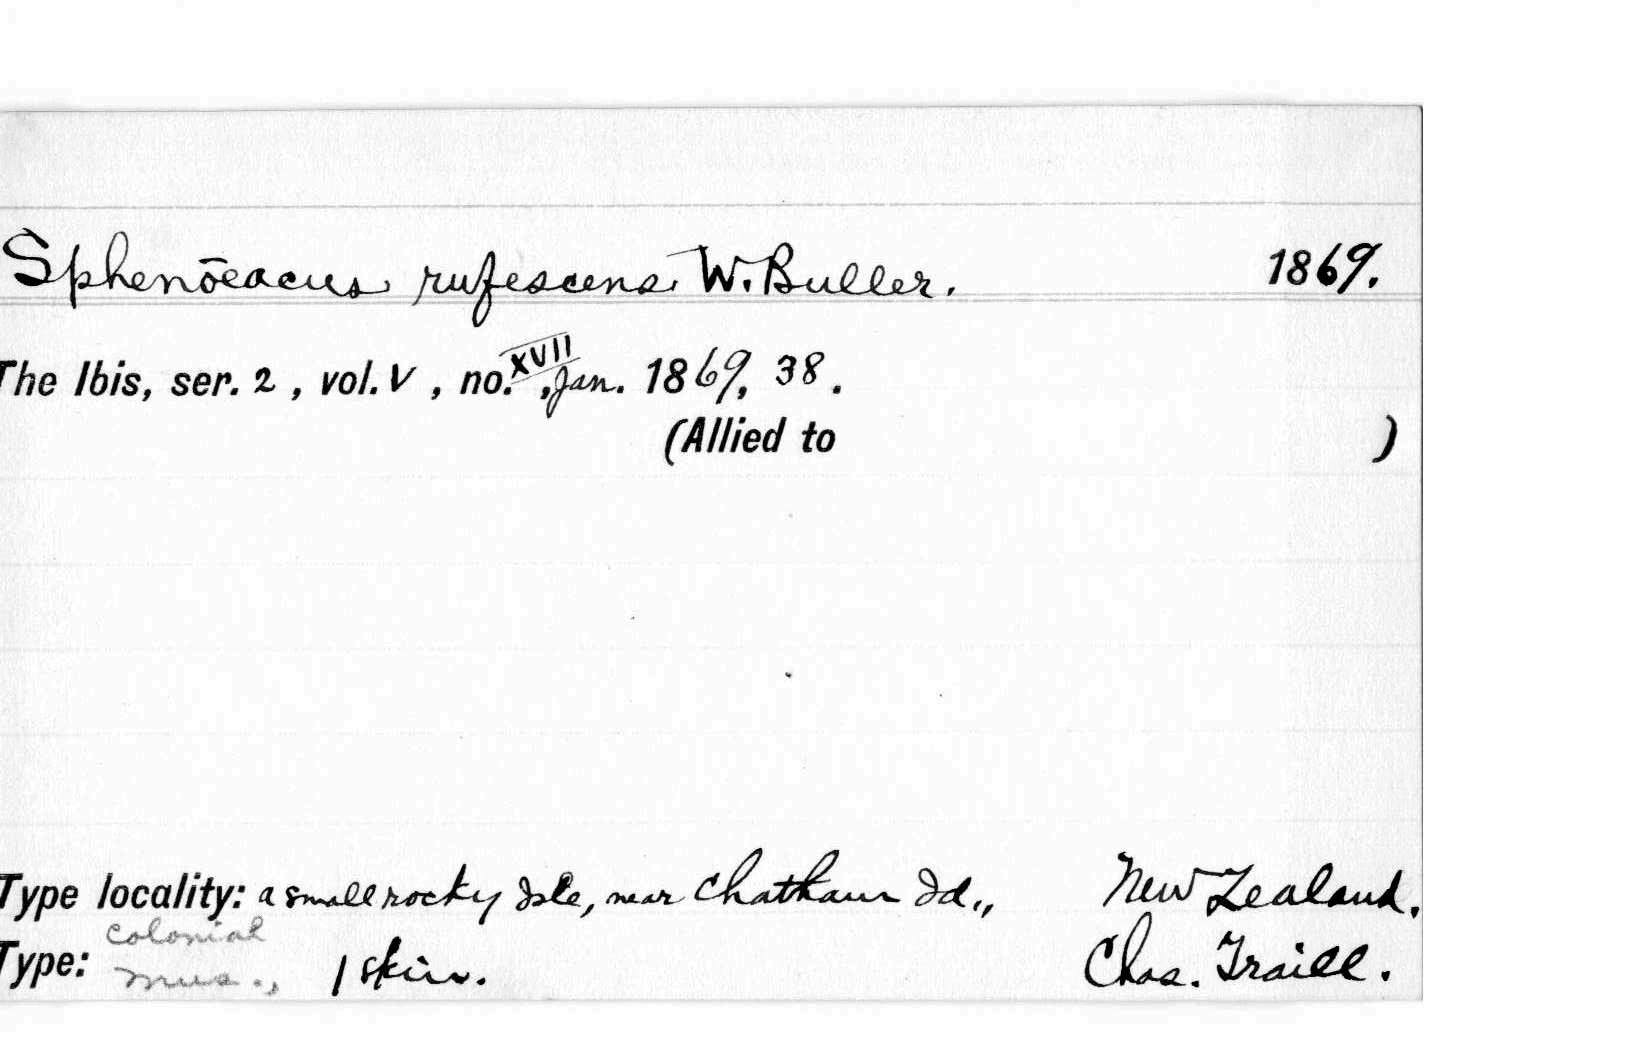 Sphenōeacus rufescens W. Buller. 1869.
The Ibis, ser. 2, vol. V, no. XVII, Jan. 1869, 38.
(Allied to )
Type locality: a small rocky Isle, near Chatham Id., New Zealand.
Type: Colonial Mus., 1 skin. Chas. Traill.